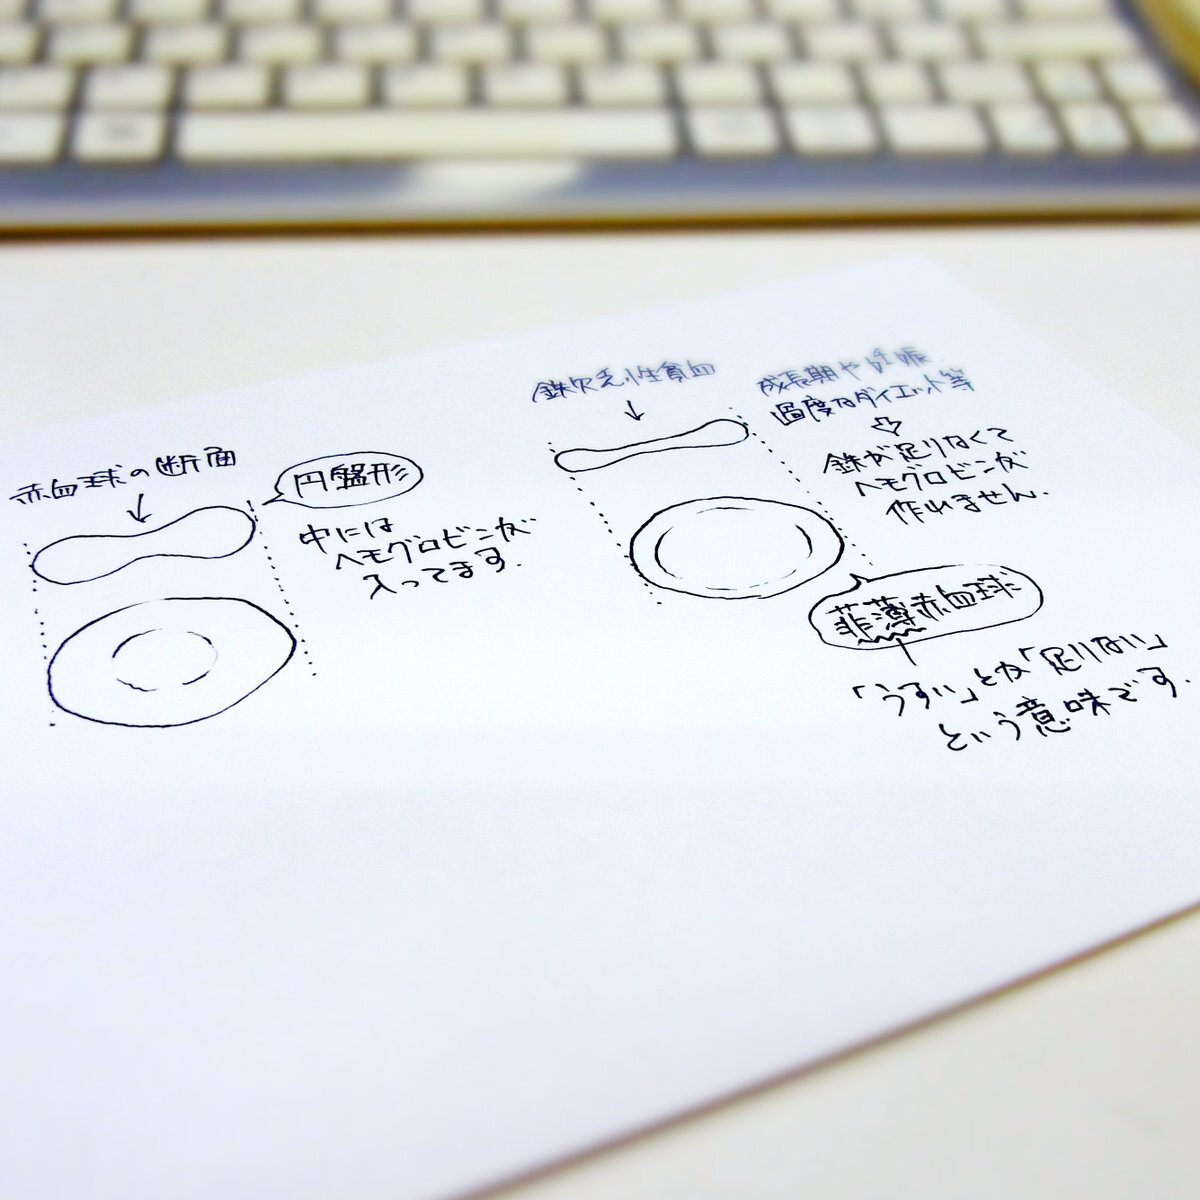 赤血球の断面
円盤形
中には
ヘモグロビンが
入ってます.
鉄欠乏性貧血
成長期や妊娠
過度なダイエット等
鉄が足りなくて
ヘモグロビンが
作れません.
菲薄赤血球
「うすい」とか「足りない」
という意味です.